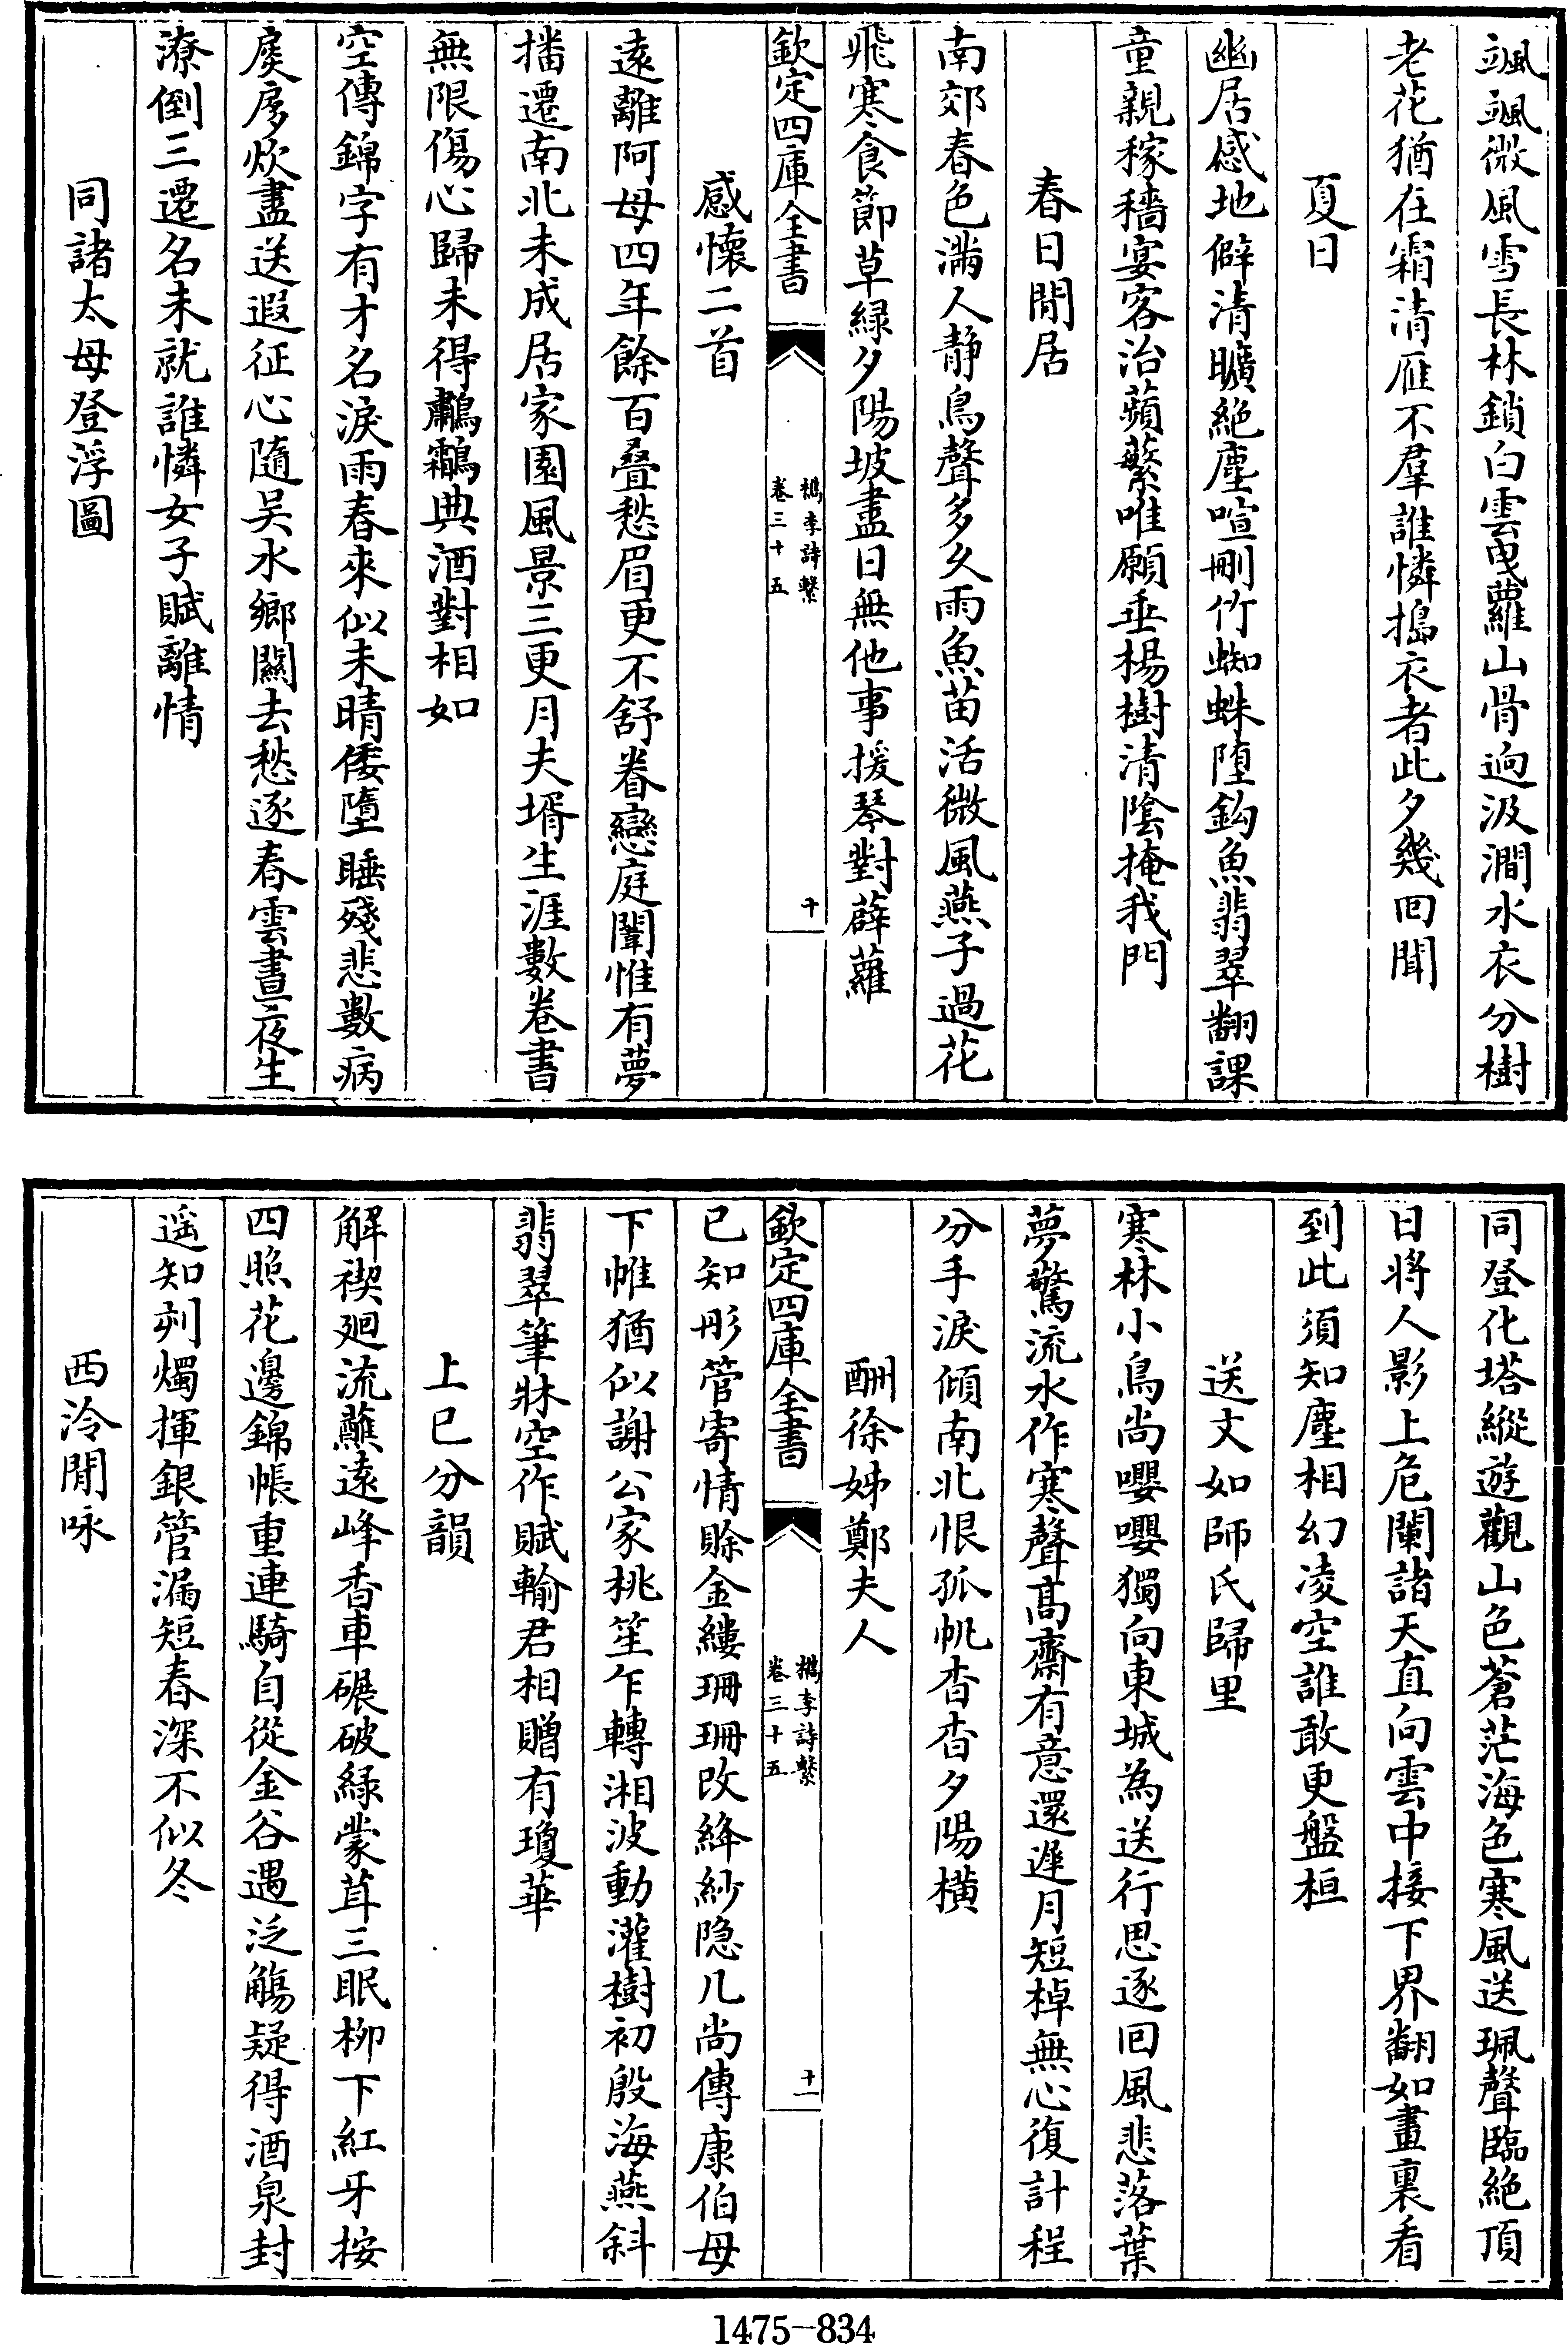 颯颯微風雪長林鎖白雲曳蘿山骨逈汲澗水衣分樹
老花猶在霜清雁不羣誰憐搗衣者此夕幾回聞
夏日
幽居感地僻清曠絶塵喧刪竹蜘蛛墮鈎魚翡翠翻課
童親稼穡宴客治蘋蘩唯願垂楊樹清陰掩我門
春日閒居
南郊春色滿人静鳥聲多久雨魚苗活微風燕子過花
飛寒食節草緑夕陽坡盡日無他事援琴對薜蘿
欽定四庫全書
檇李詩繫
卷三十五
十
感懷二首
遠離阿母四年餘百叠愁眉更不舒眷戀庭闈惟有夢
播遷南北未成居家園風景三更月夫壻生涯數卷書
無限傷心歸未得鷫鸘典酒對相如
空傳錦字有才名淚雨春來似未晴倭墮睡殘悲數病
扊扅炊盡送遐征心隨吴水鄉關去愁逐春雲晝夜生
潦倒三遷名未就誰憐女子賦離情
同諸太母登浮圖
同登化塔縱遊觀山色蒼茫海色寒風送珮聲臨絶頂
日將人影上危闌諸天直向雲中接下界翻如畫裏看
到此須知塵相幻凌空誰敢更盤桓
送文如師氏歸里
寒林小鳥尚嚶嚶獨向東城為送行思逐回風悲落葉
夢驚流水作寒聲髙齋有意還遲月短棹無心復計程
分手淚傾南北恨孤帆杳杳夕陽横
酬徐姊鄭夫人
已知彤管寄情賒金縷珊珊改絳紗隐几尚傳康伯母
下帷猶似謝公家桃笙乍轉湘波動灌樹初殷海燕斜
翡翠筆牀空作賦輸君相贈有瓊華
上巳分韻
解禊廻流蘸遠峰香車碾破緑蒙茸三眠柳下紅牙按
四照花邊錦帳重連騎自從金谷遇泛觴疑得酒泉封
遥知刻燭揮銀管漏短春深不似冬
西泠閒咏
欽定四庫全書
檇李詩繫
卷三十五
十一
1475-834